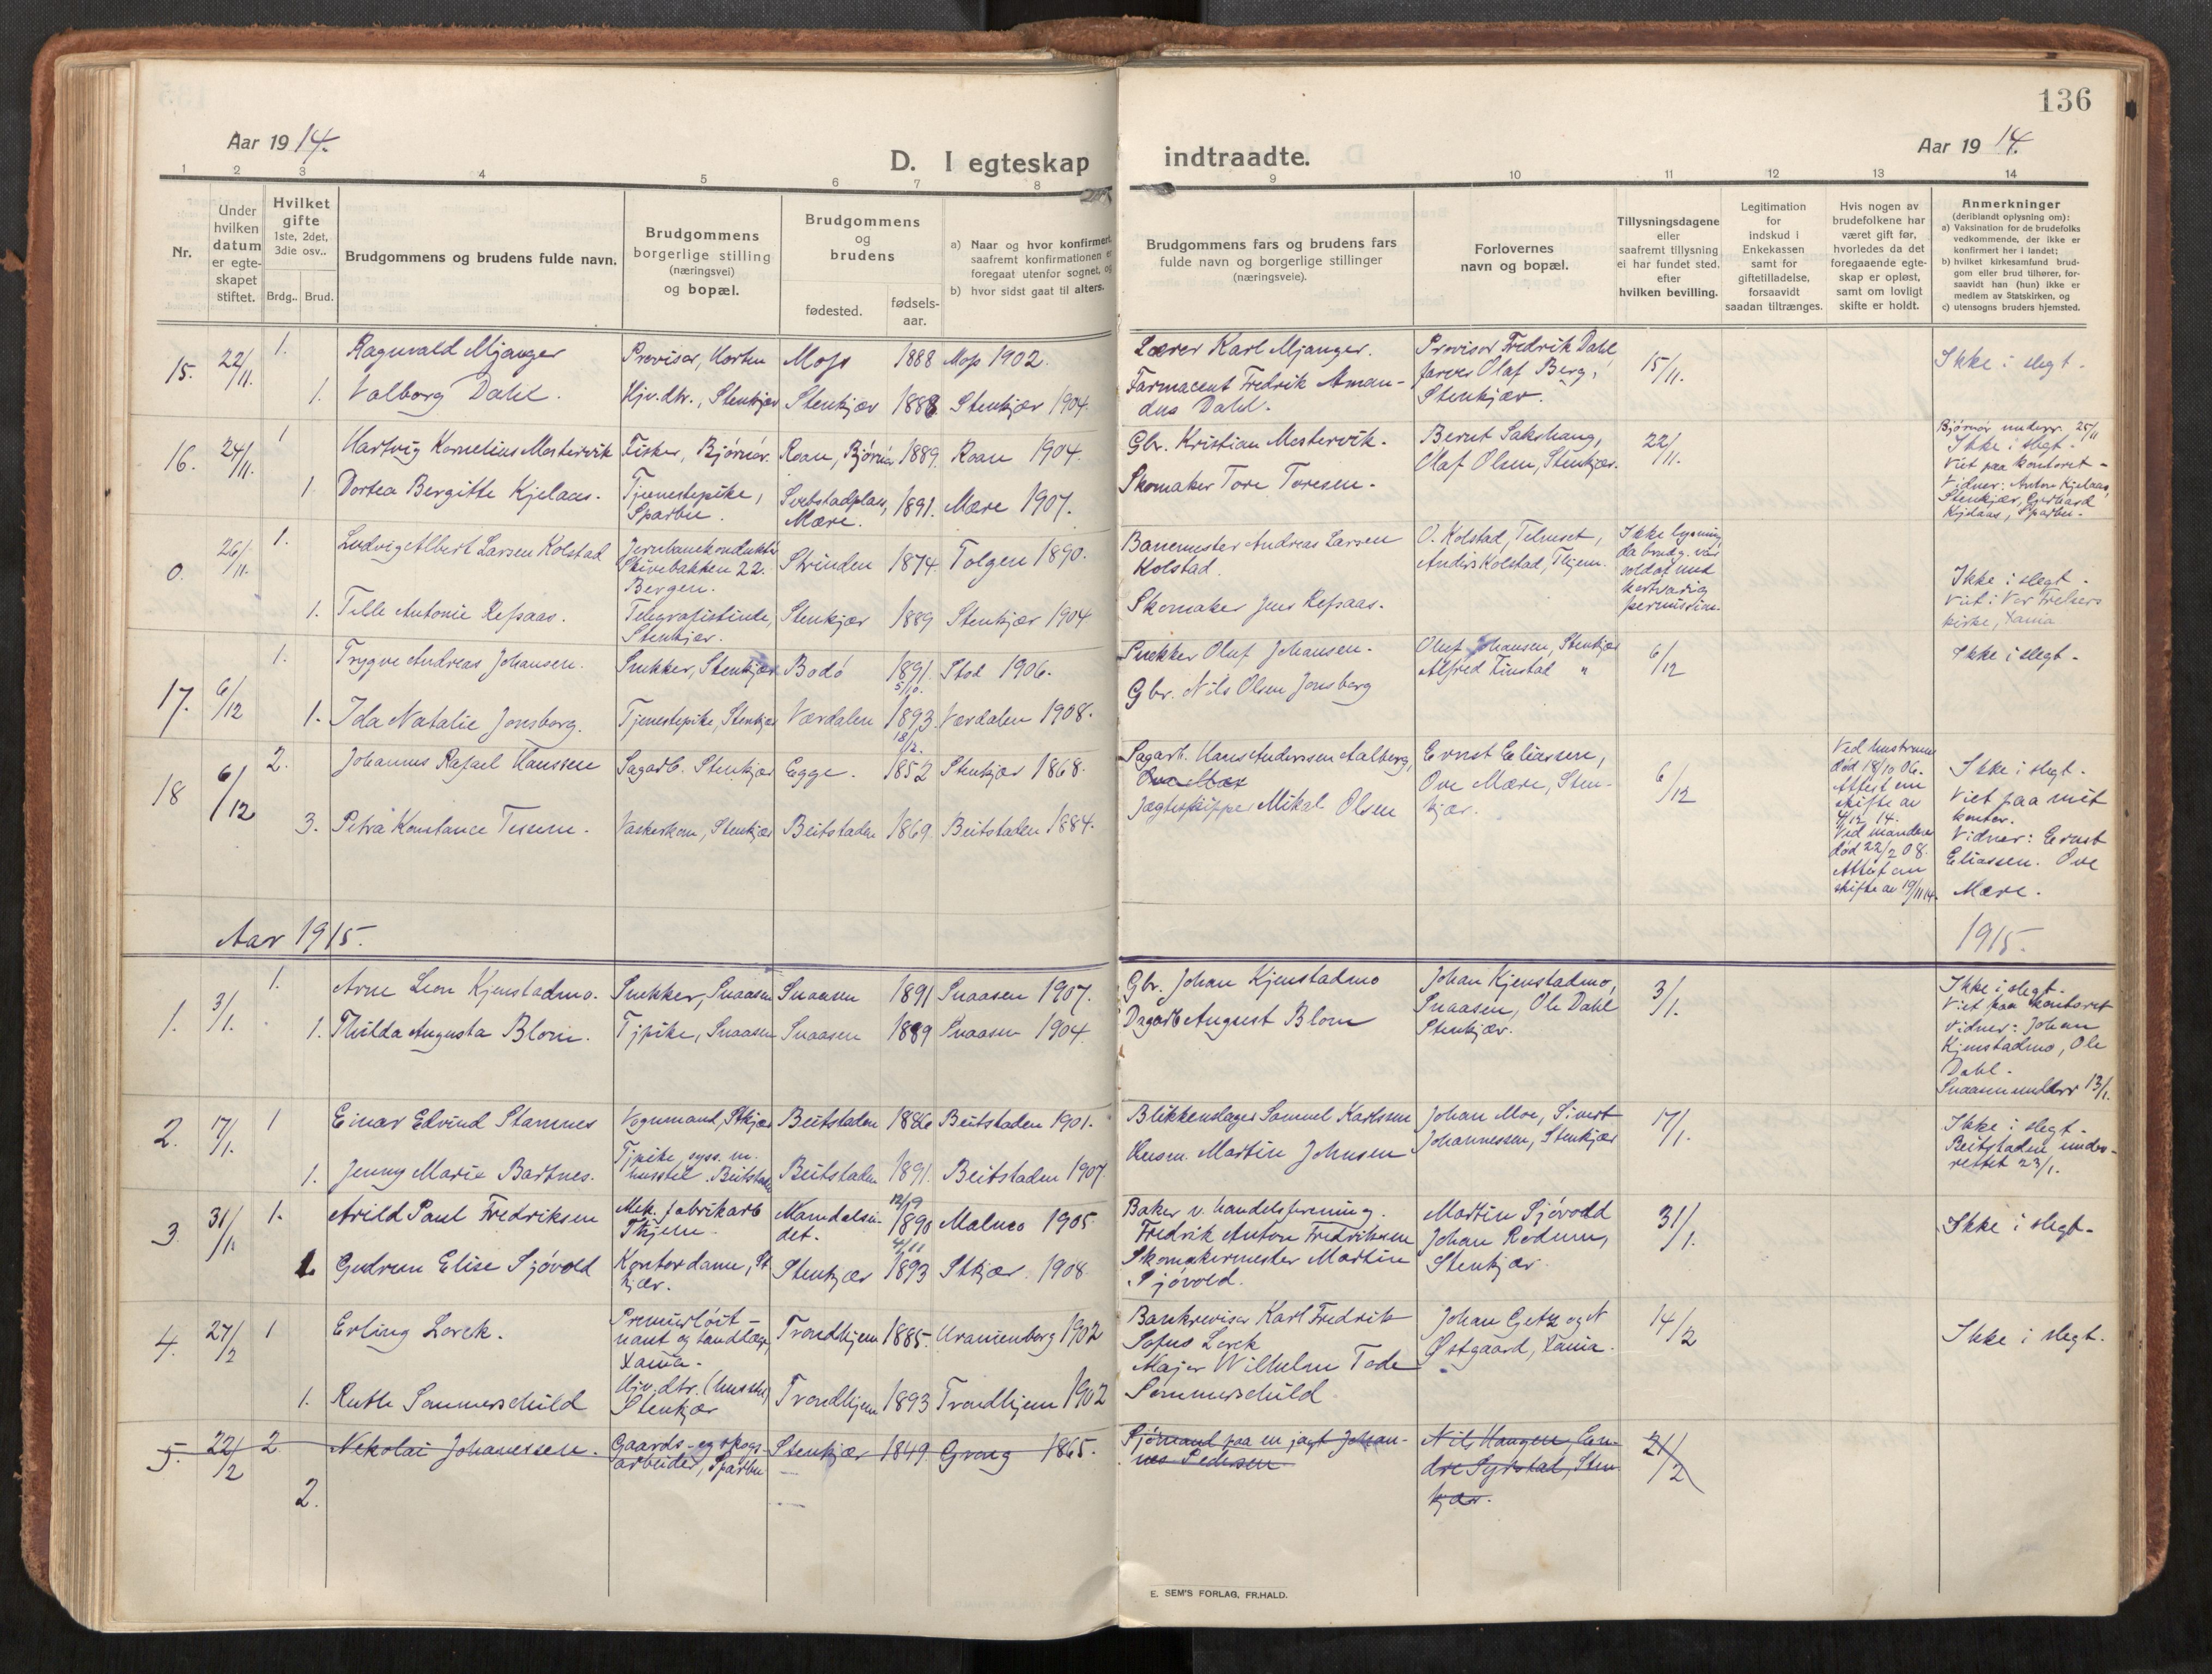 136
Aar 1914.
Aar 1914.
D. I egteskap indtraadte.
1 2 3 4 5 6 7 8 9 10 11 12 13 14
Nr.
Under hvilken datum er egte-skapet stiftet.
Hvilket gifte
1ste, 2det, 3die osv..
Brdg.. Brud.
Brudgommens og brudens fulde navn.
Brudgommens borgerlige stilling (næringsvei) og bopæl.
Brudgommens og brudens
fødested.
fødsels-aar.
a) Naar og hvor konfirmert, saafremt konfirmationen er foregaat utenfor sognet, og
b) hvor sidst gaat til alters.
Brudgommens fars og brudens fars fulde navn og borgerlige stillinger (næringsveie).
Forlovernes navn og bopæl.
Tillysningsdagene eller saafremt tillysning ei har fundet sted, efter hvilken bevilling.
Legitimation for indskud i Enkekassen samt for giftetilladelse, forsaavidt saadan tiltrænges.
Hvis nogen av brudefolkene har været gift før, hvorledes da det foregaaende egte-skap er opløst, samt om lovligt skifte er holdt.
Anmerkninger
(deriblandt oplysning om):
a) Vaksination for de brudefolks vedkommende, der ikke er konfirmert her i landet;
b) hvilket kirkesamfund brud-gom eller brud tilhører, for-saavidt han (hun) ikke er medlem av Statskirken, og
c) utensogns bruders hjemsted.
15. 22/11. 1. Ragnvald Mjanger Provisor, Horten Moss 1888 Moss 1902. Lærer Karl Mjanger. Provisor Fredrik Dahl 15/11. Ikke i slegt.
1. Valborg Dahl. Hjv. dtr., Stenkjær Stenkjær 1888 Stenkjær 1904. Farmaceut Fredrik Aman-dus Dahl. Olaf Berg, Stenkjær.
16. 24/11. 1 Hartvig Kornelius Mestervik Fisker, Bjørnør. Roan, Bjørnør 1889. Roan 1904. Gbr. Kristian Mestervik. Bernt Sakshaug, Olaf Olsen, Stenkjær. 22/11.
Bjørnør underr. 25/11
Ikke i slegt.
Viet paa kontoret -
Vidner: Anton Kjelaas, Stenkjær, Kjelaas, Sparbu.
1 Dortea Bergitte Kjelaas. Tjenestepike, Sparbu. Mære. 1891. Mære 1907. Skomaker Tore Toresen.
0. 26/11. 1. Ludvig Albert Larsen Kolstad Jernbanekonduktør Skivebakken 22. Bergen. Strinden 1874. Tolgen 1890. Banemester Andreas Larsen Kolstad. O. Kolstad, Telneset, Anders Kolstad, Thjem.
Ikke lysning, da brudg. var soldat med kortvarig permission.
Ikke i slegt -
Viet i Vor Frelsers kirke, Xania
1. Tille Antonie Refsaas. Telegrafistinde, Stenkjær. Stenkjær 1889 Stenkjær 1904 Skomaker Jens Refsaas.
17. 6/12 1. Trygve Andreas Johansen. Snekker, Stenkjær Bodø 1891. 5/10. Stod 1906. Snekker Oluf Johansen. Oluf Johansen, Stenkjær Alfred Finstad " 6/12 Ikke i slegt -
1. Ida Natalie Jonsborg. Tjenestepike, Stenkjær Værdalen 1893. 18/12. Værdalen 1908. Gbr. Nils Olsen Jonsborg
18 6/12 2. Johannes Rafael Hanssen Sagarb. Stenkjær Egge. 1852 Stenkjær 1868. Sagarb. Hans Anderssen Aalberg, Ernst Eliassen, Ove Mære, Sten-kjær. 6/12
Ved hustruens død 18/10 06. Attest om skifte av 4/12 14.
Ved mandens død 22/2 08. Attest om skifte av 19/11 14.
Ikke i slegt.
Viet paa mit kontor.
Vidner: Ernst Eliassen. Ove Mære.
3. Petra Konstance Tessem. Vaskerkone, Stenkjær Beitstaden 1869. Beitstaden 1884. Jægteskipper Mikal Olsen
Aar 1915. 1915.
1. 3/1. 1. Arne Leon Kjenstadmo. Snekker, Snaasen Snaasen 1891 Snaasen 1907. Gbr. Johan Kjenstadmo Johan Kjenstadmo, Snaasen, Ole Dahl Stenkjær. 3/1.
Ikke i slegt.
Viet paa kontoret
Vidner: Johan Kjenstadmo, Ole Dahl.
Snaasen underr 13/1.
1. Thilda Augusta Blom. Tjpike, Snaasen Snaasen 1889 Snaasen 1904 Dagarb August Blom
2. 17/1. 1 Einar Edvind Stamnes Vognmand, Stkjær Beitstaden 1886 Beitstaden 1901. Blikkenslager Samuel Karlsen Johan Moe, Sivert Johannessen, Stenkjær 17/1.
Ikke i slegt -
Beitstaden under-rettet 23/1.
1. Jenny Marie Bartnes. Tjpike, syss. m. husstel. Beitstaden Beitstaden 1891. Beitstaden 1907. Husm. Martin Johnsen
3. 31/1. 1. Arild Paul Fredriksen Mek. fabrikarb Thjem. Namdalsei-det. 12/9 1890 Malmo 1905 Baker v. handelsforening. Fredrik Anton Fredriksen Martin Sjøvold Johan Rodum, Stenkjær. 31/1. Ikke i slegt -
1. Gudrun Elise Sjøvold Kontordame, St kjær. Stenkjær 4/11 1893 Stkjær. 1908. Skomakermester Martin Sjøvold.
4. 27/2 1 Erling Lorck. Premierløit-nant og tandlæge, Xania. Trondhjem 1885. Uranienborg 1902 Bankrevisor Karl Fredrik Sofus Lorck Johan Getz og N Østgaard, Xania. 14/2 Ikke i slegt.
1. Ruth Sommerschild Hjv. dtr. (husstel) Stenkjær Trondhjem 1893 Trondhjem 1902 Major Wilhelm Tode Sommerschild
5. 22/2 2 Nekolai Johanessen. Gaards- og skogs-arbeider, Sparbu Stenkjær 1849. Grong 1865. Sjømand paa en jagt Johan-nes Pedersen Nils Haugen, Sten-kjær. 21/2
2.
E. SEM'S FORLAG, FR.HALD.